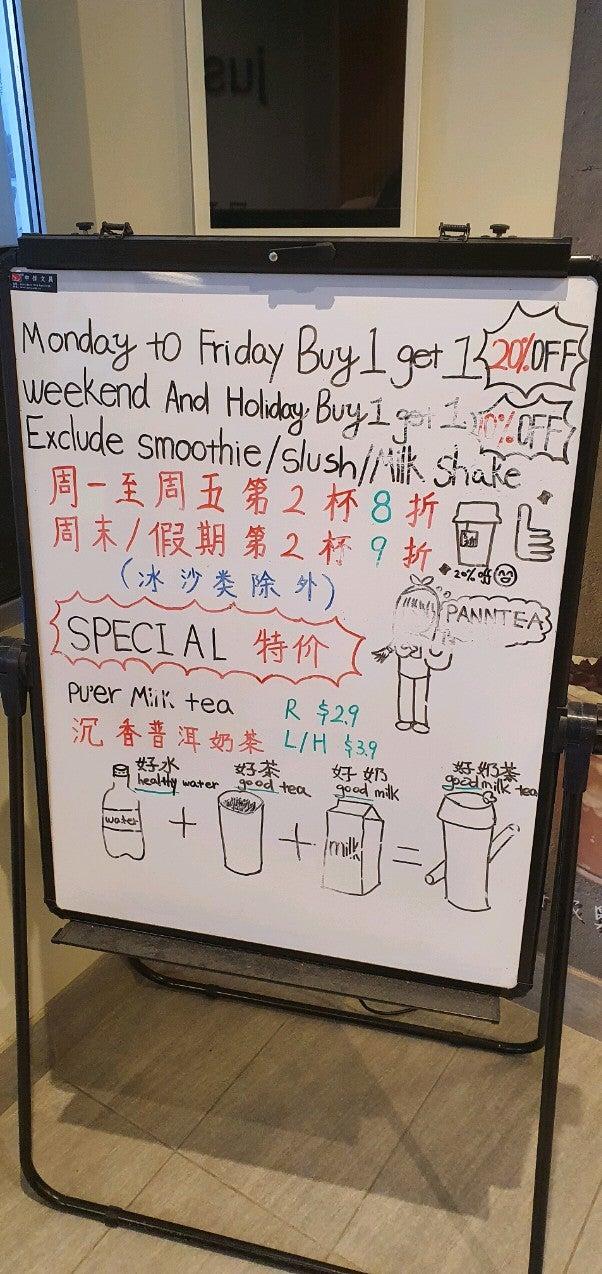 just
Monday to Friday Buy 1 get 1 20% OFF
weekend And Holiday Buy 1 get 1 10% OFF
Exclude smoothie/slush/Milk shake
周一至周五第2杯8折
周末/假期第2杯9折
20% off
(冰沙类除外)
PANNTEA
SPECIAL 特价
Pu'er Milk tea R $2.9
沉香普洱奶茶 L/H $3.9
好水 好茶 好奶 好奶茶
healthy water good tea good milk good milk tea
water + + milk =